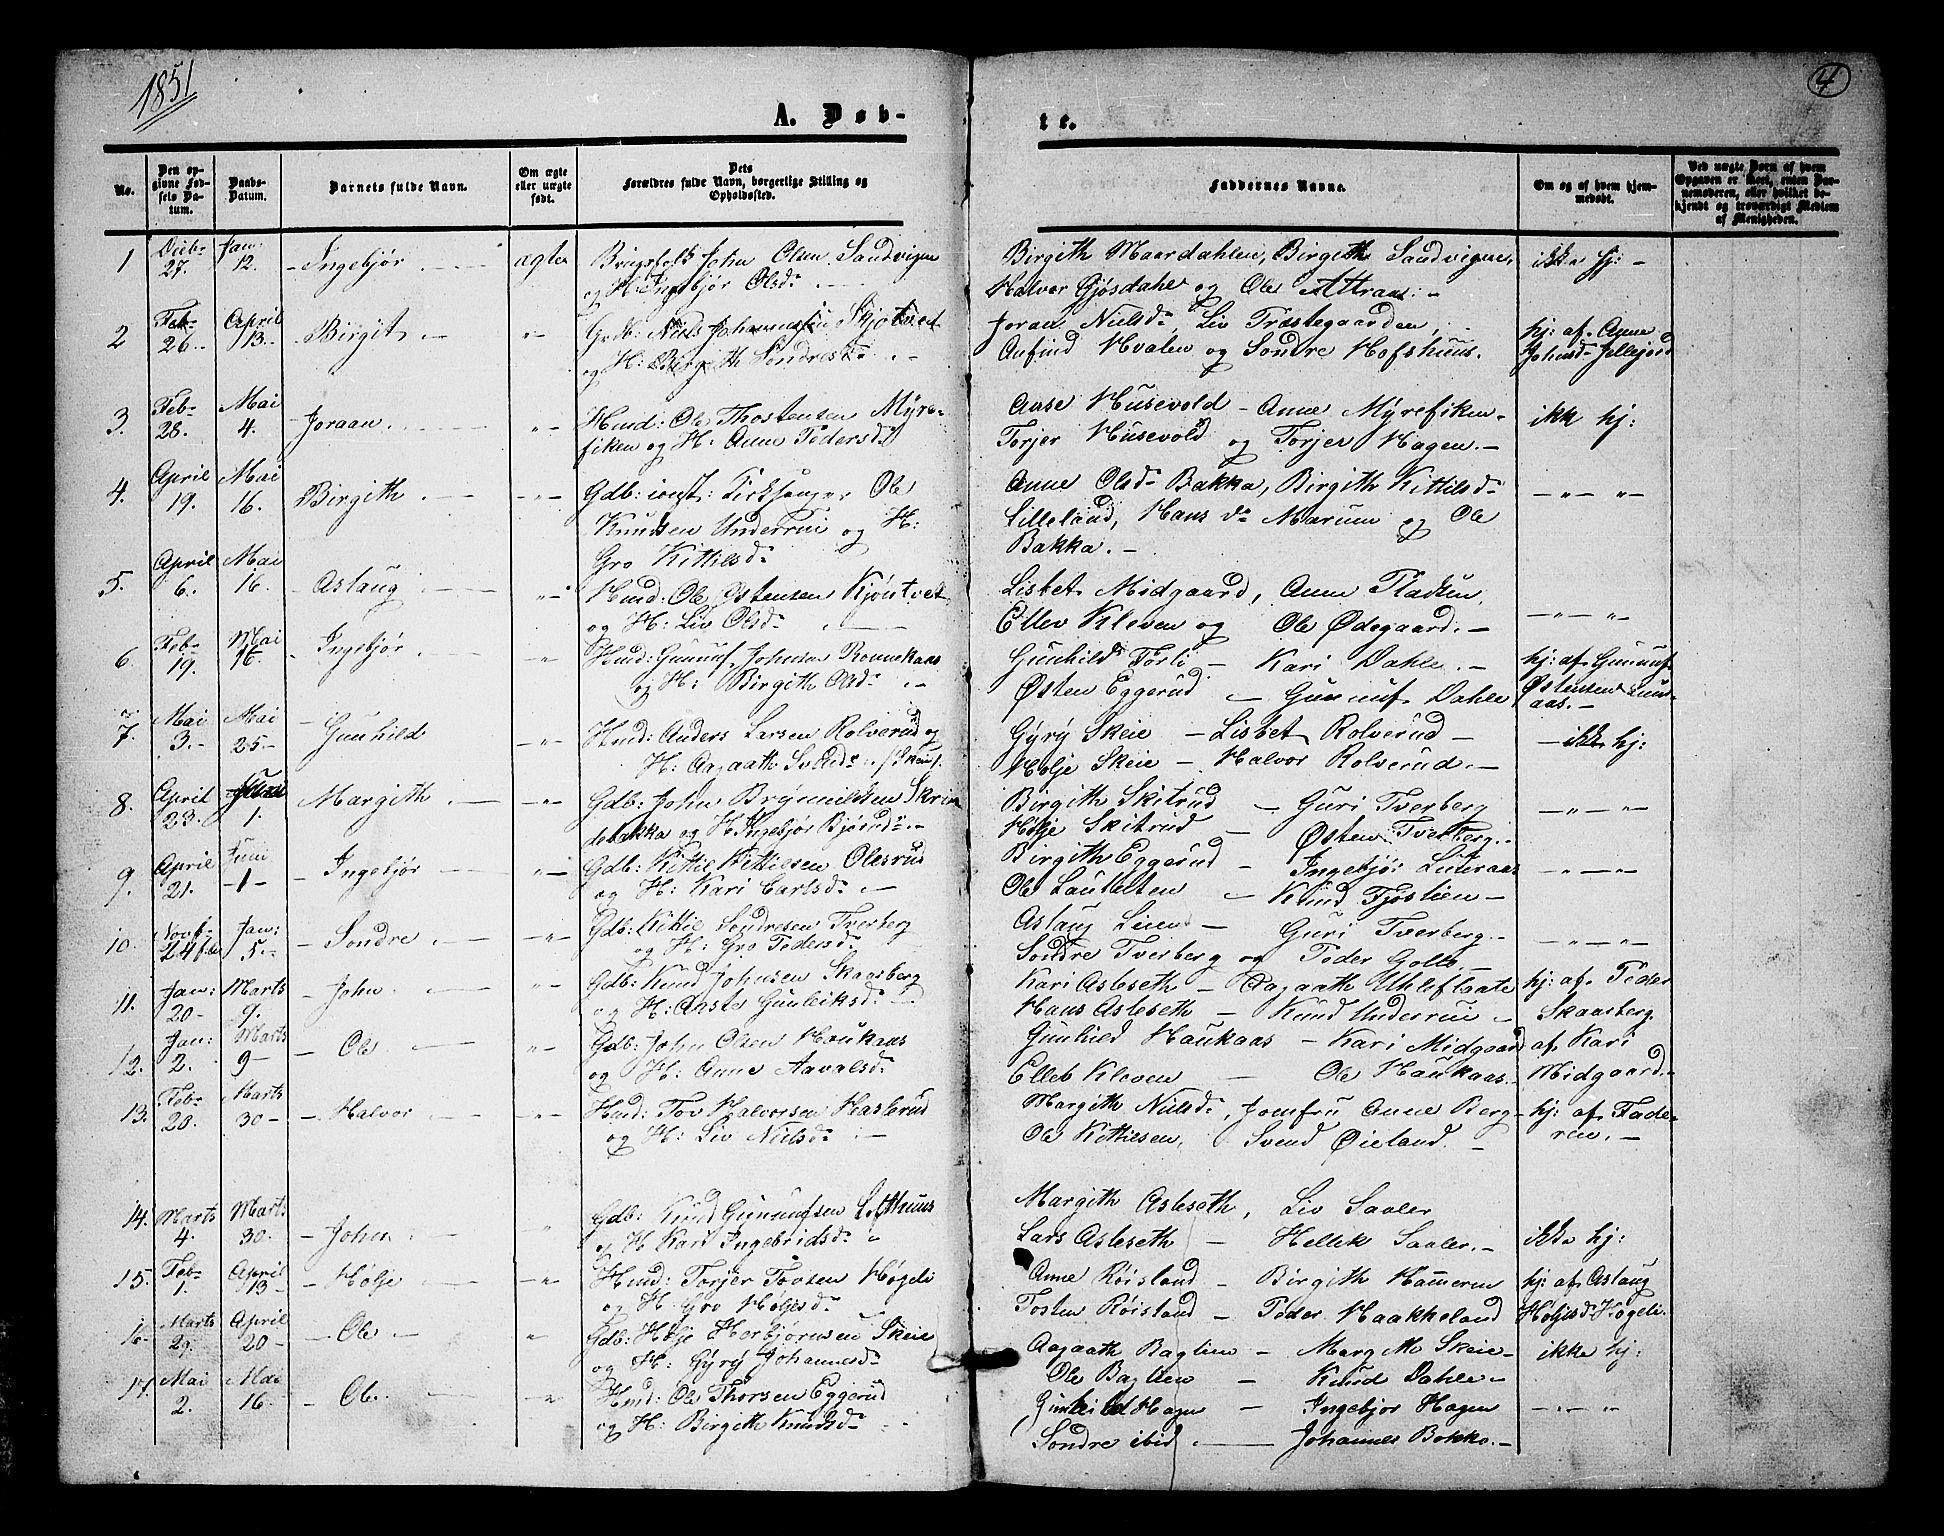 1851
4
A. Døb-
te.
No.
Den op-
givne Fød-
sels Da-
tum.
Daabs-
Datum.
Barnets fulde Navn.
Om ægte
eller uægte
født.
Dets
Forældres fulde Navn, borgerlige Stilling og
Opholdssted.
Faddernes Navne.
Om og af hvem hjem-
medøbt.
Ved uægte Børn af hvem
Opgaven er skeet, enten Bar-
nemoderen, eller hvilket be-
kjendt og troværdigt Medlem
af Menigheden.
1 Debr 27. Jan: 12. - Ingebjør. ægte John Olsen Sandvigen
og H: Ingebjør Olsdr
Birgith Maardahlen, Birgith Sandvigen,
Halvor Gjøsdahl og Ole Attraa: -
ikke hj: -
2 Feb- 26. April 13. - Birgit. -"- Gdb: Niels Johannessen Skjotvedt
og H: Birgith Sondresdr
Joran Nielsdr, Liv Træstegaarden,
Anfind Hvalen og Sondre Hofshuus.
hj: af Anne
Johnsdr Jellejord
3. Feb- 28. Mai 4. - Joraan. -"- Hmd: Ole Thostensen Myre-
fiken og H: Anne Pedersdr
Aase Husevold - Anne Myrefiken -
Torjer Husevold og Torjer Hagen. -
ikk hj:
4. April 19. Mai 16. - Birgith. -"- Gdb: const: Kirksanger Ole
Knudsen Underrui og H:
Gro Kittilsdr
Anne Olsdr Bakka, Birgith Kittilsdr
Lilleland, Hans dr Marum og Ole
Bakka. -
-"- "-
5. April 6. Mai 16. - Aslaug -"- Hmd: Ole Østensen Kjøntvet
og H: Liv Olsdr
Lisbet Midgaard, Anne Pladsen,
Ellev Kleven og Ole Ødegaard. -
-"- "-
6. Feb- 19. Mai 16. - Ingebjør -"- Hmd: Gunuf Johnsen Ronnekaas
og H: Birgith Olsdr
Gunhild Torli - Kari Dahle. -
Østen Eggerud - Gunnuf Dahle
hj: af Gunnuf
Østensen Luus-
aas. -
7. Mai 3. Mai 25. - Gunhild -"- Hmd: Anders Larsen Rolverud og
H: Aagaath
Gyry Skeie - Lisbet Rolverud -
Holje Skeie - Halvor Rolverud. -
- ikke hj:
8. April 23. Juni 1. Margith. -"- Gdb: John Brynnildsen Skrin
debakka og H: Ingebjør Bjørnsdr
Birgith Skitrud - Guri Tverberg
Holje Skitrud - Østen Tverberg. -
-"- "-
9. April 21. Juni 1 - - Ingebjør. -"- Gdb: Kittil Kittilsen Olesrud
og H: Kari Carlsdr
Birgith Eggerud - Ingebjør Luteraas
Ole - Knud Fjøslien -
-"- "-
10. Novb- 24 Jan: 5. - Sondre. -"- Gdb: Kittil Sondresen Tverberg
og H: Gro Pedersdr
Aslaug Lien - Guri Tverberg. -
Sondre Tverberg og Peder
-"- "-
11. Jan: 20- Marts 9. - John. -"- Gdb: Knud Johnsen Skaasberg
og H: Aaste Gunleiksdr
Kari Asleseth - Aagaath Uhlefleate
Hans Asleseth - Knud Underrui -
hj: af Peder
Skaasberg
12. Jan: 2. Marts 9- - Ole -"- Gdb: John Olsen Haukaas
og H: Anne Aavalsdr
Gunhild Haukaas - Kari Midgaard
Ellev Kleven - Ole Haukaas. -
af Kari
Midgaard. -
13. Feb- 20. Marts 30- - Halvor -"- Hmd: Tov Halvorsen Haslerud
og H: Liv Nielsdr
Margith Nielsdr, Jomfru Anne Berg -
Ole Kittilsen, Svend Øieland. -
hj: af Fade-
ren. -
14. Marts 4. Marts 30. - John. " Gdb: Knud Gunnufsen Lofthuus
og H Kari Ingebridsdr
Margith Asleseth, Liv Saaler
Lars Asleseth - Hellik Saaler. -
ikke hj:
15. Feb- 1. April 13- - Hølje -"- Hmd: Torjer Tovsen Høgeli
og H: Gro Høljesdr
Anne Røisland - Birgith Hameren
Tosten Røisland - Peder Haakkeland
hj: af Aslaug
Høljesdr Høgeli.
16- Marts 29. April 20- - Ole - " Gdb: Hølje Herbjørnsen Skeie
og H: Gyry Johannesdr
Aagaath Baglien - Margith Skeie -
Ole Baglien - Knud Dahle -
ikke hj:
17. Mai 2. Mai 16. - Ole. -"- Hmd: Ole Thorsen Eggerud
og H: Birgith Knudsdr
Gunhild Hagen - Ingebjør Hagen
Sondre ibid. - Johannes Bokko. -
-"- "